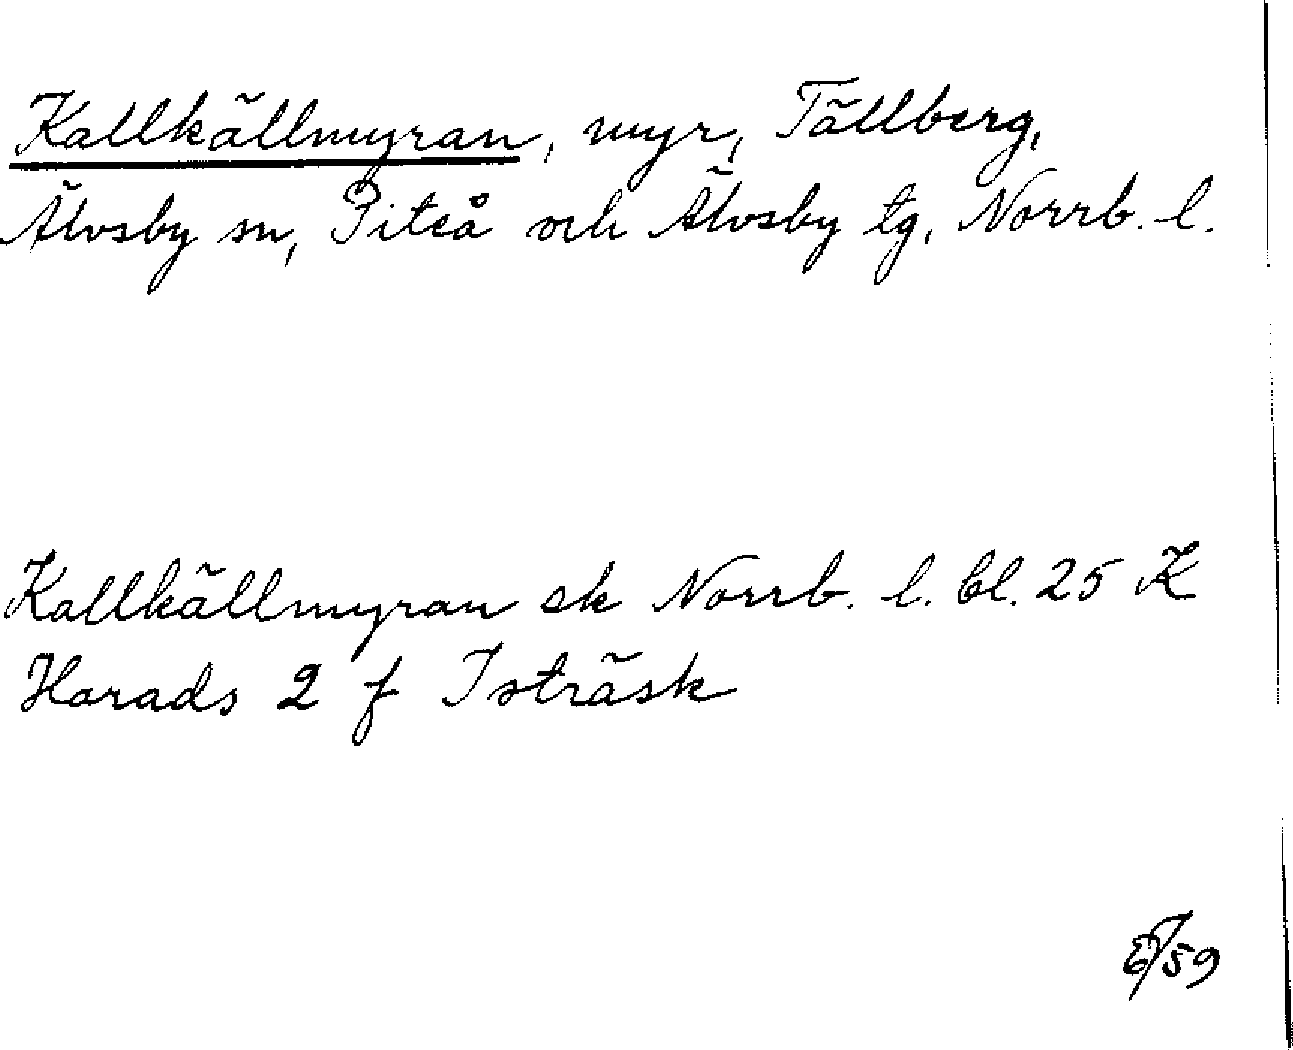 Kallkällmyran, myr, Tällberg,
Älvsby sn, Piteå och Älvsby tg, Norrb. l.
Kallkällmyran ek Norrb. l. bl. 25 K
Harads 2 f Isträsk
/59